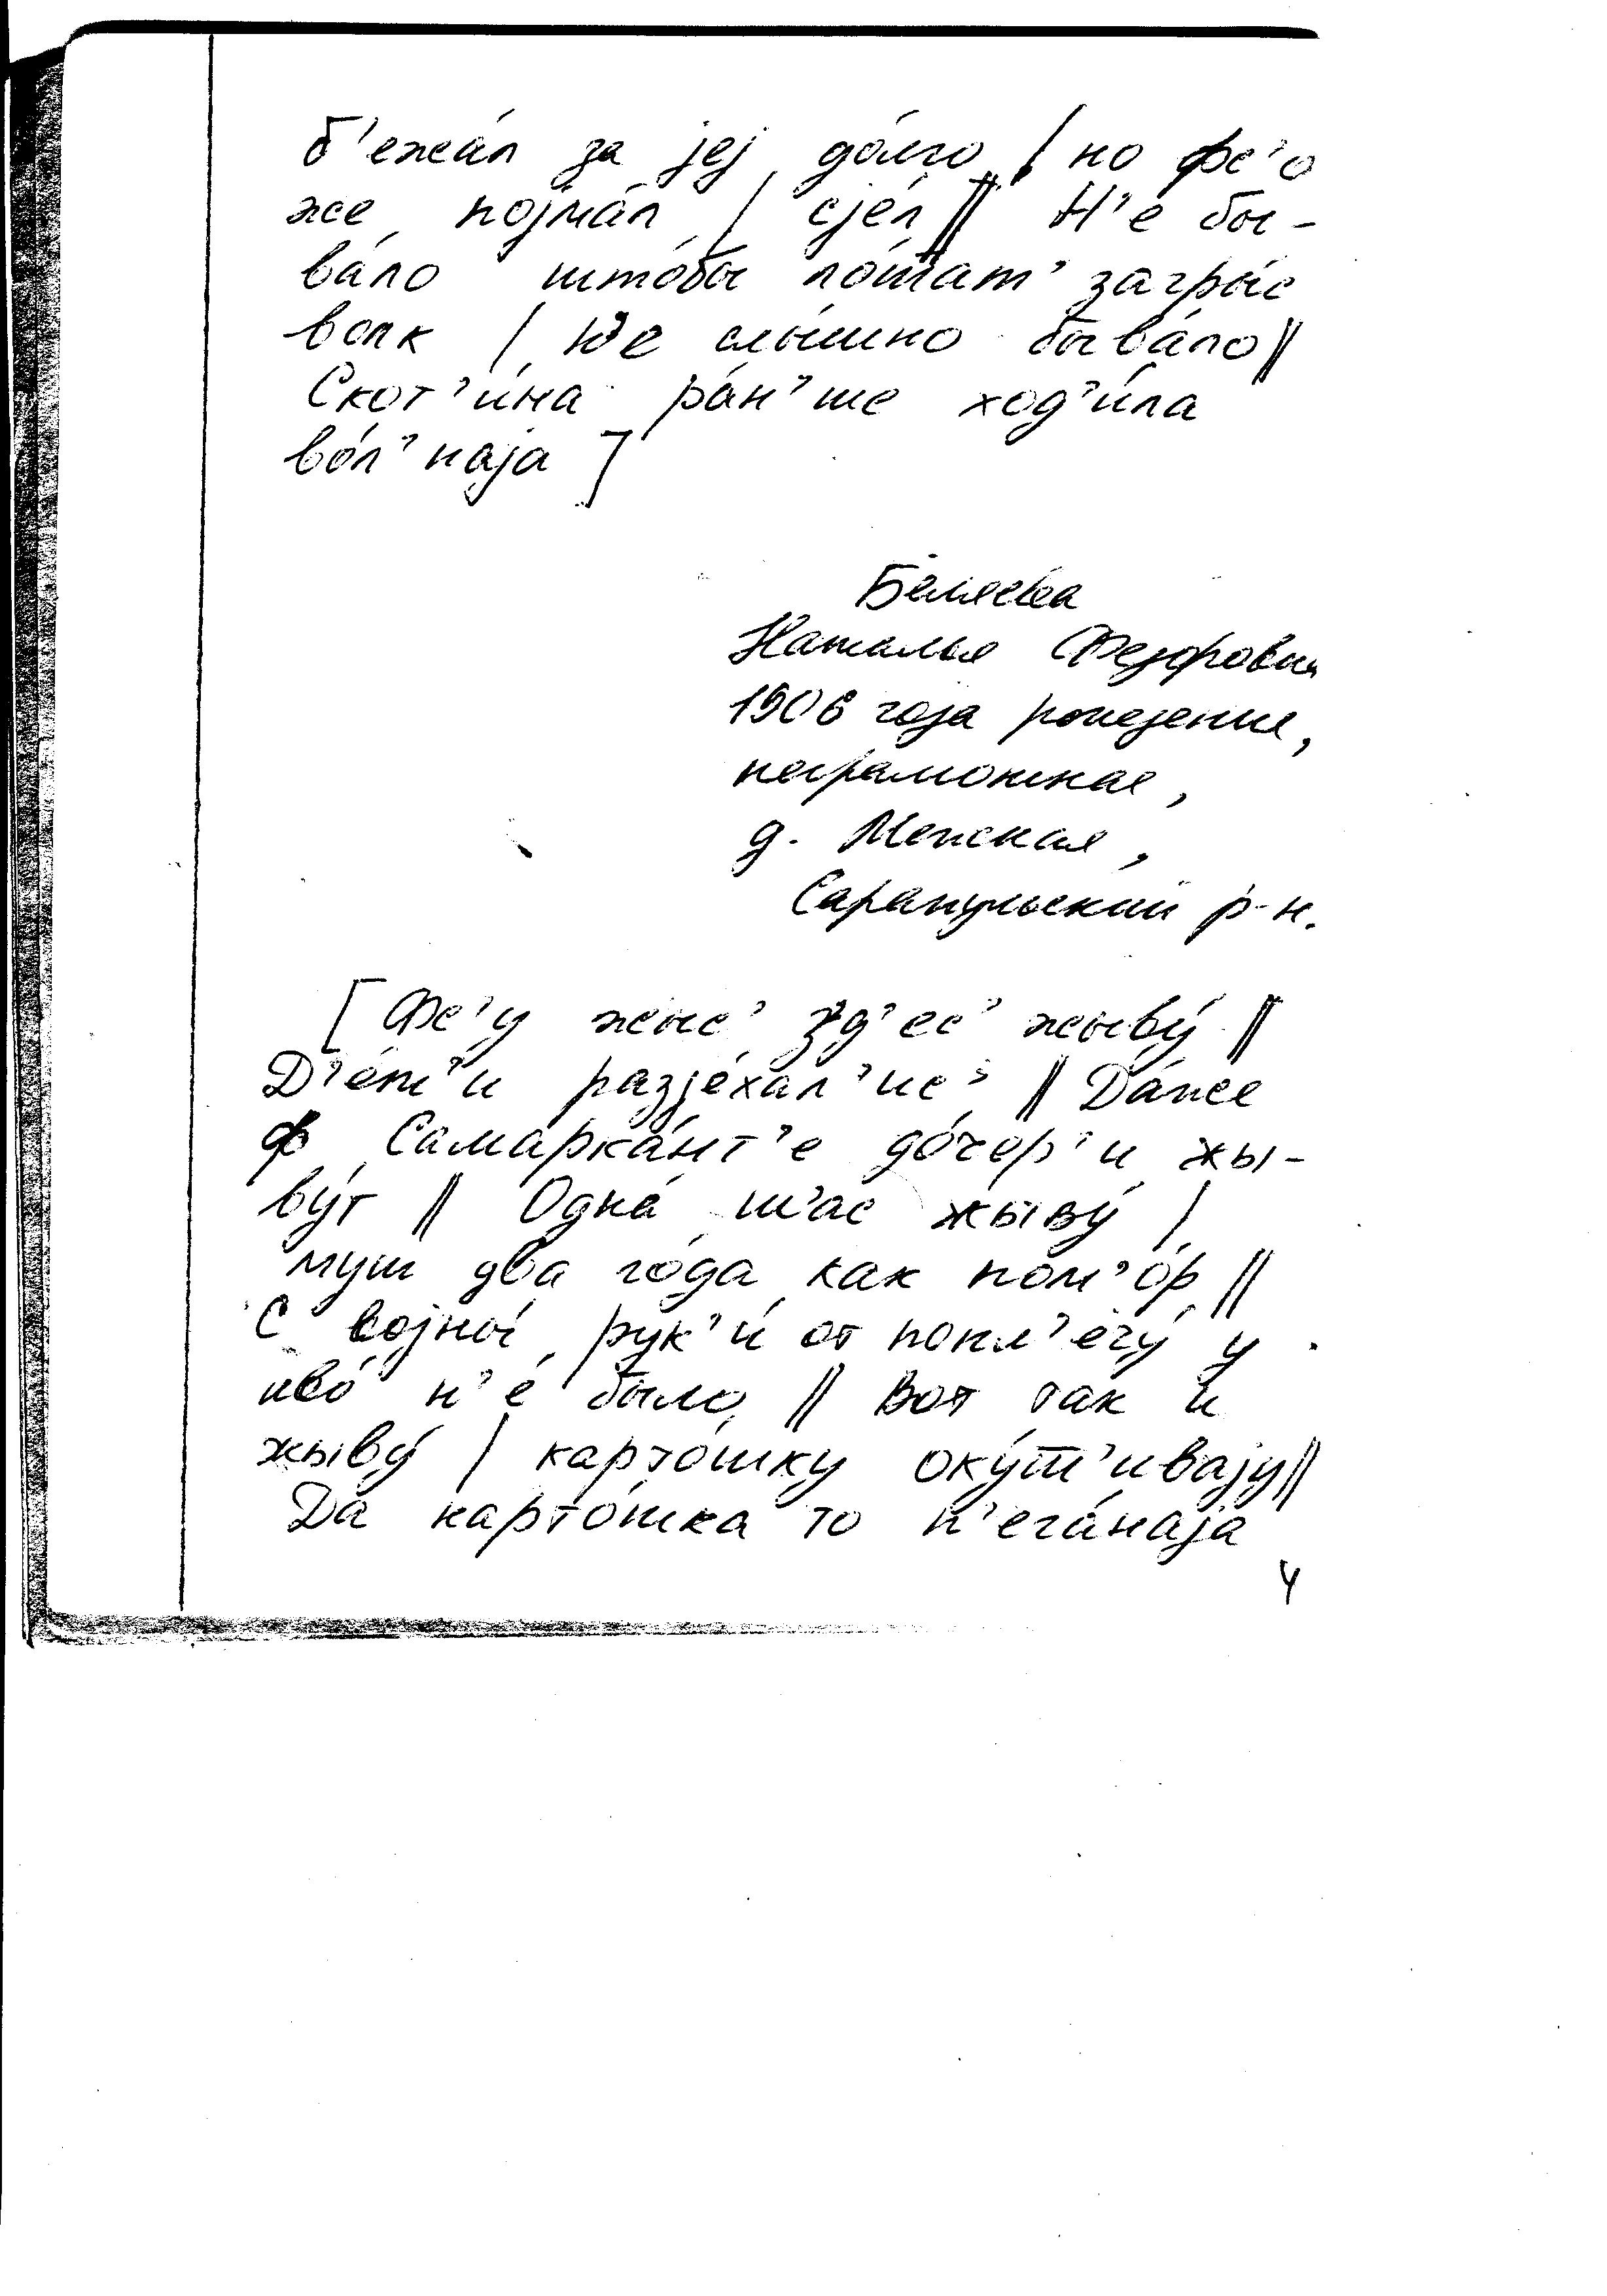 б'ежа́л за jеj до́лго / но фс'о
же поjма́л / сjе́л // Н'е́ бы-
ва́ло што́бы ло́шат' загры́с
волк / Не слы́шно быва́ло //
Скот'и́на ра́н'ше ход'и́ла
во́л'наjа ]
Беляева
Наталья Федоровна
1906 года рождения,
неграмотная,
д.
Сарапульский р-н.
[ Фс'у жыс' зд'ес' жыву́ //
Д'е́т'и разjе́хал'ис' // Да́же
ф Самарка́нт'е до́чер'и жы-
ву́т // Одна́ ш'ас жыву́ /
муш два го́да как пом'о́р //
С воjны́ рук'и́ от
иво́ н'е́ было // Вот так и
жыву́ / карто́шку оку́т'иваjу //
Да карто́шка то п'ега́наjа
4